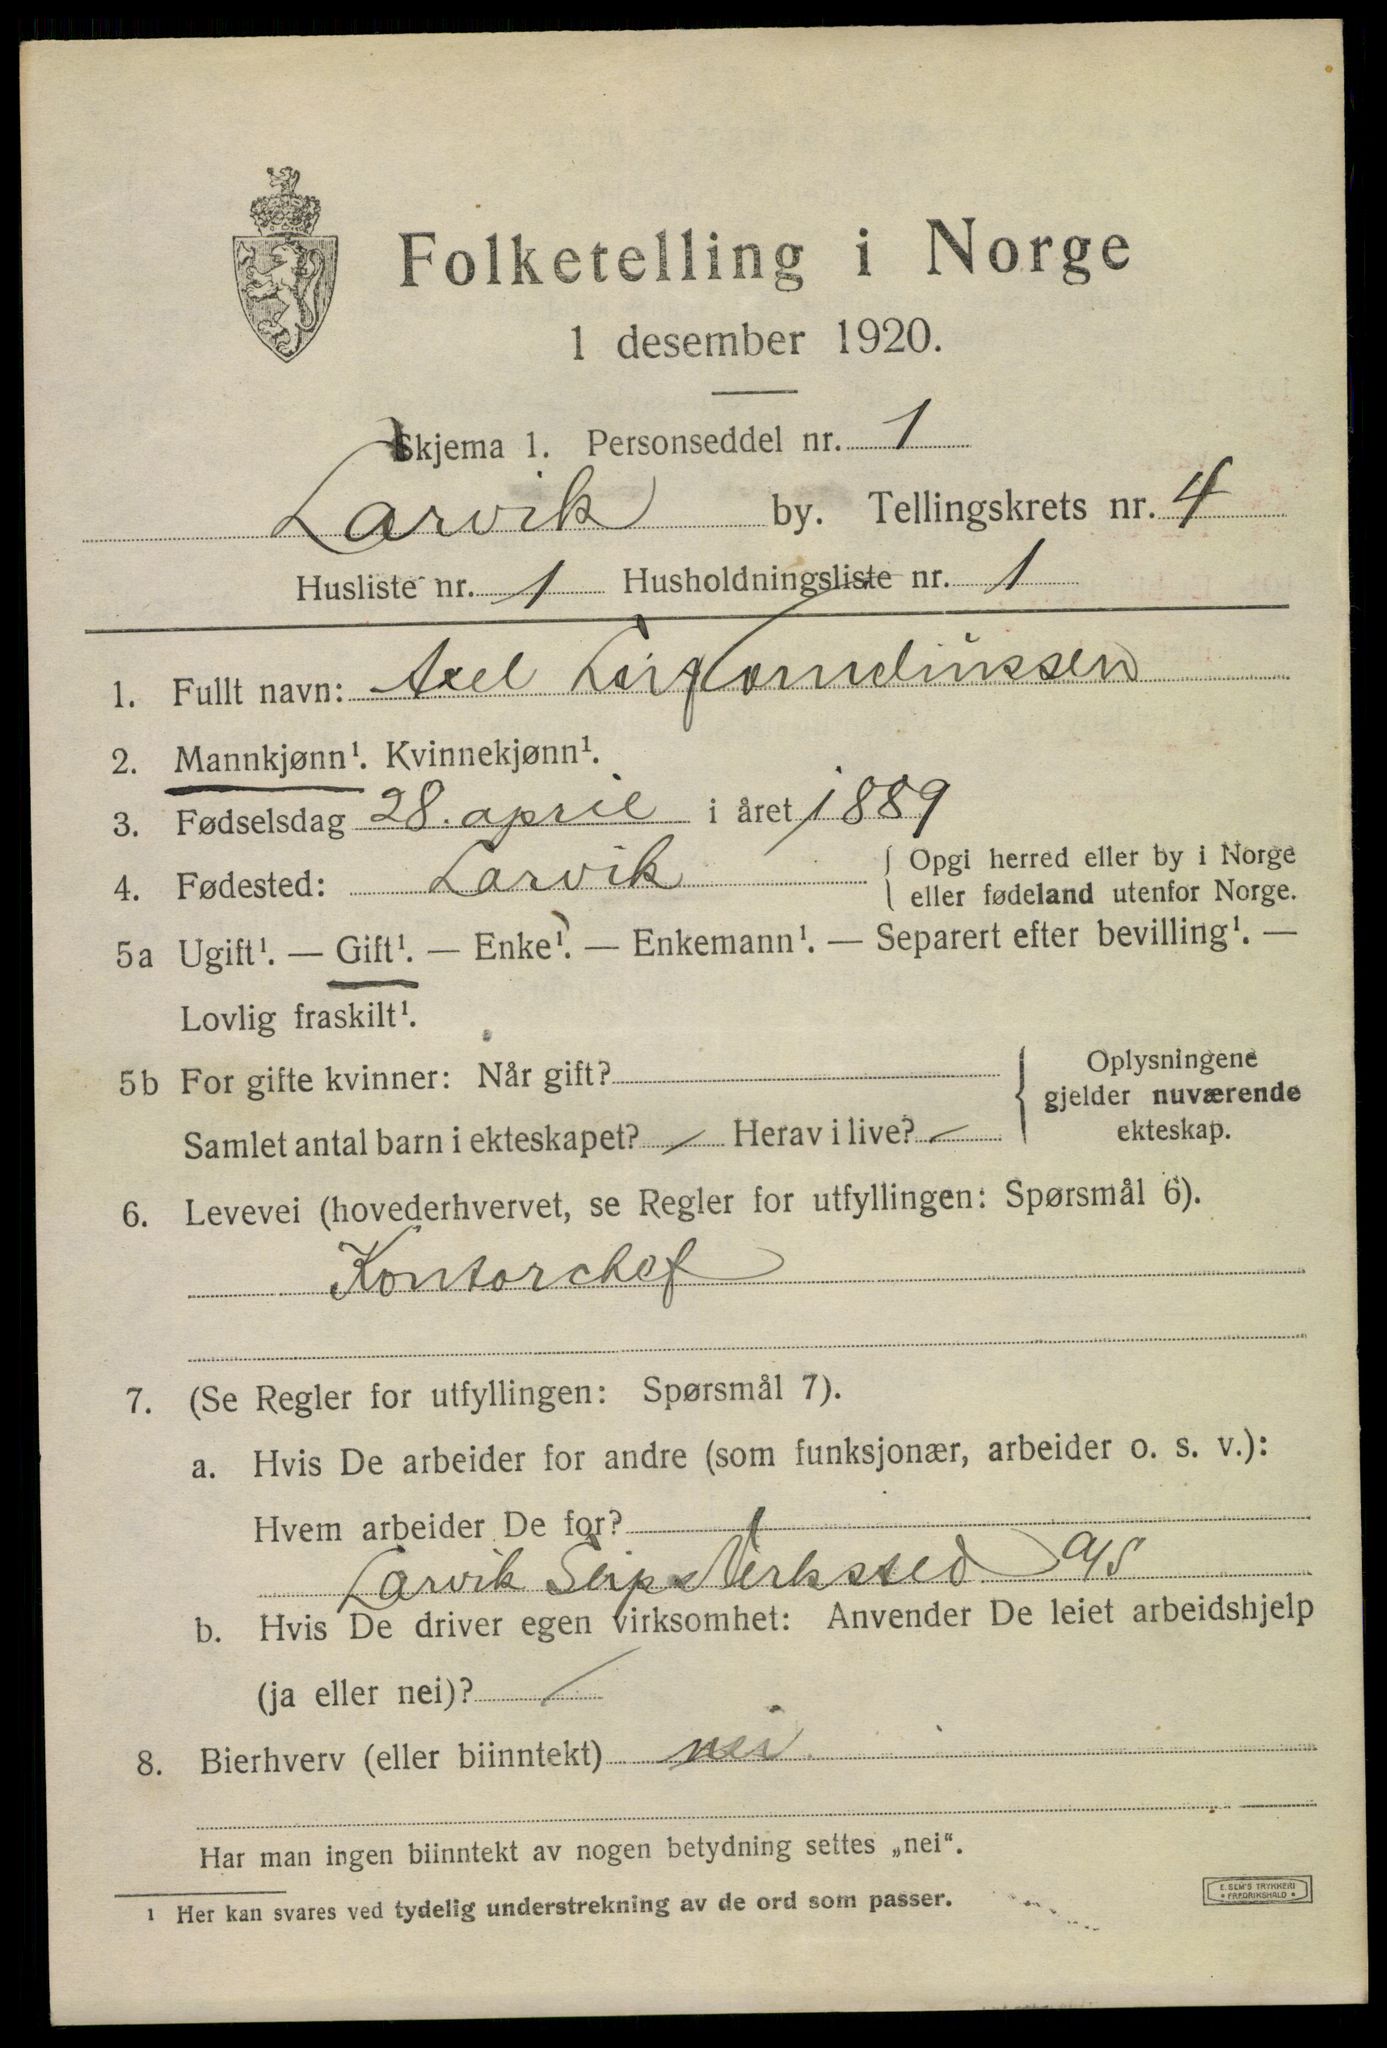 Folketelling i Norge
1 desember 1920.
Skjema 1. Personseddel nr. 1
Larvik by. Tellingskrets nr. 4
Husliste nr. 1 Husholdningsliste nr. 1
1. Fullt navn: Axel Leif Corneliussen
2. Mannkjønn¹. Kvinnekjønn¹.
3. Fødselsdag 28. april i året 1889
4. Fødested: Larvik { Opgi herred eller by i Norge
eller fødeland utenfor Norge.
5a Ugift¹. — Gift¹. — Enke¹. — Enkemann¹. — Separert efter bevilling¹. —
Lovlig fraskilt¹.
5b For gifte kvinner: Når gift?
Samlet antal barn i ekteskapet? / Herav i live? /
{ Oplysningene
gjelder nuværende
ekteskap.
6. Levevei (hovederhvervet, se Regler for utfyllingen: Spørsmål 6).
Kontorchef
7. (Se Regler for utfyllingen: Spørsmål 7).
a. Hvis De arbeider for andre (som funksjonær, arbeider o. s. v.):
Hvem arbeider De for?
Larvik Slips Verksted A/S
b. Hvis De driver egen virksomhet: Anvender De leiet arbeidshjelp
(ja eller nei)? /
8. Bierhverv (eller biinntekt) nei
Har man ingen biinntekt av nogen betydning settes „nei“.
1 Her kan svares ved tydelig understrekning av de ord som passer.
E. SEM'S TRYKKERI
• FREDRIKSHALD •